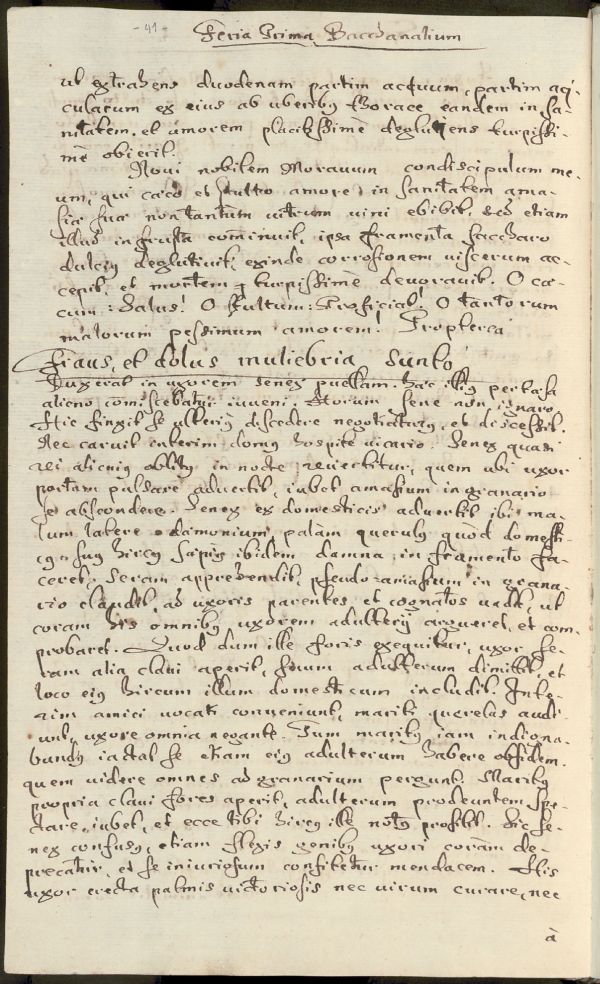 - 41 -
Feria Prima Bacchanalium
ut extrahens duodenam partim acuum, partim aci-
cularum ex eius ab uberibꝰ thorace eandem in sa-
nitatem, et amorem placitissimè deglutiens turpissi-
mè obierit.
Novi nobilem Moravum condiscipulum me-
um, qui caeco et stulto amore in sanitatem ama-
siae suae non tantùm vitrum vini ebibit, sed etiam
illud in frusta comminuit, ipsa framenta saccharo
dulciꝰ deglutivit, exinde corrosionem viscerum ac-
cepit, et mortem turpissimè devoravit. O cae-
cum: Salus! O stultum: Proficiat! O tantorum
malorum pessimum amorem! Propterea
Fraus, et dolus muliebria sunto
Duxerat in uxorem senex puellam. Haec illiꝰ pertaesa
alieno commiscebatur iuveni. Horum sene non ignaro
Hic fingit se ulteriꝰ discedere negotiatum, et discessit.
Nec caruit interim domꝰ hospite vicario. Senex quasi
rei alicuiꝰ oblitꝰ in nocte revertitur, quem ubi uxor
portam pulsare advertit, iubet amasium in granario
se abscondere. Senex ex domesticis advertit ibi ma-
lum latere daemonium palàm querulꝰ quòd domesti-
cꝰ suꝰ hircꝰ saepiꝰ ibidem damna in framento fa-
ceret. Seram apprehendit, pseudo-amasium in grana-
rio claudit, ad uxoris parentes et cognatos vadit, ut
coram his omnibꝰ uxorem adulterij argueret, et com-
probaret. Quod dum ille foris exequitur, uxor se-
ram alia clavi aperit, suum adulterum dimittit, et
loco eiꝰ hircum illum domesticum includit. Inte-
rim amici vocati conveniunt, mariti querelas audi-
unt, uxore omnia negante. Tum maritꝰ iam indigna-
bundꝰ iactat se etiam eiꝰ adulterum habere obsidem.
quem videre omnes ad granarium pergunt. Maritꝰ
propria clavi fores aperit, adulterum prodeuntem spe-
ctare iubet, et ecce tibi hircꝰ ille notꝰ prosilit. Sic se-
nex confusꝰ, etiam flexis genibꝰ uxori coram de-
precatur, et se iniuriosum confitetur mendacem. His
uxor erecta palmis victoriosis nec virum curare, nec
à